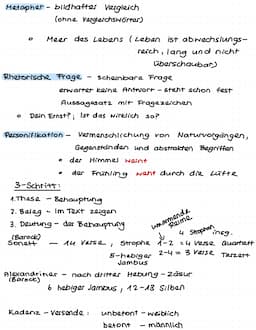 Metapher - bildhafter Vergleich
(ohne Vergleichswörter)
Meer des Lebens (Leben ist abwechslungs-
reich, lang und nicht
überschaubar)
Rhetorische Frage - scheinbare Frage
erwartet keine Antwort - steht schon fest
Aussagesatz mit Fragezeichen
Dein Ernst?, Ist das wirklich so?
Personifikation - Vermenschlichung von Naturvorgängen,
Gegenständen und abstrakten Begriffen
der Himmel weint
der Frühling weht durch die Lüfte
3-Schritt:
1. These - Behauptung
2. Beleg - im Text zeigen
3. Deutung - der Behauptung
umarmende Reime
(Barock)
4 Strophen insg.
Sonett - 14 Verse, Strophe 1-2 = 4 Verse Quartett
5-hebiger 2-4 = 3 Verse Terzett
Jambus
Alexandriner - nach dritter Hebung - Zäsur
(Barock)
6 hebiger Jambus, 12-13 Silben
Kadenz - Versende: unbetont - weiblich
betont - männlich